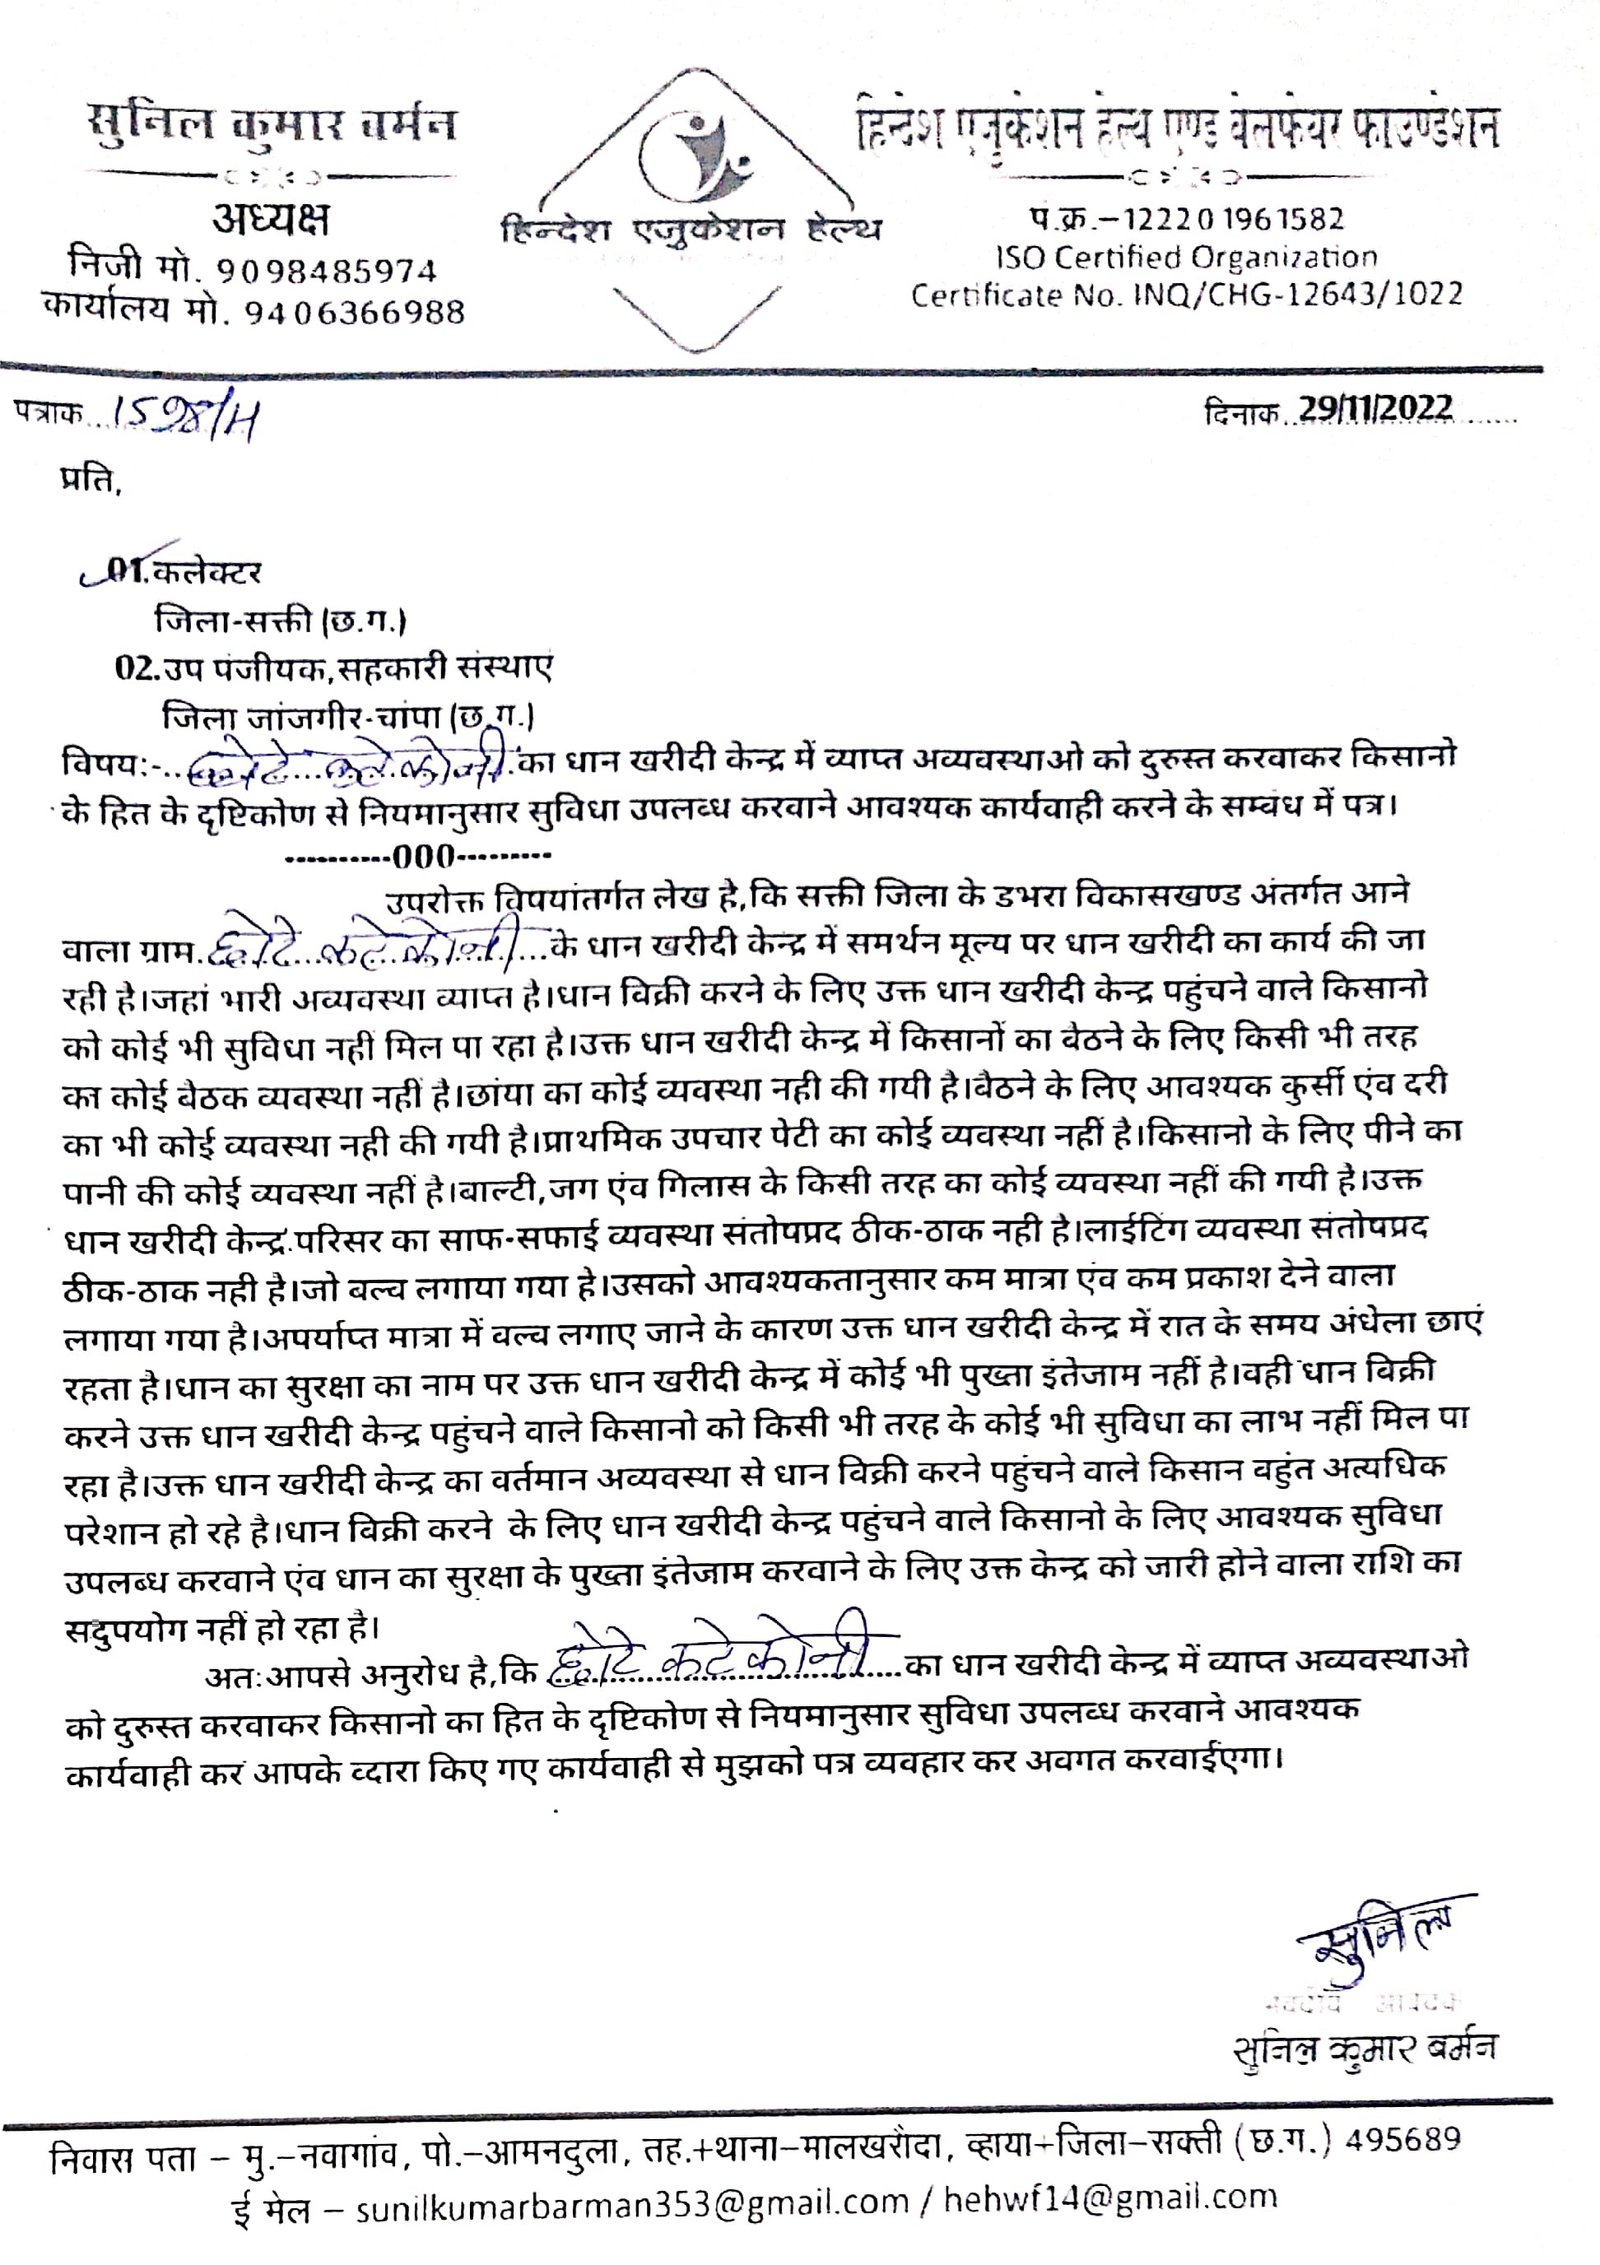 सुनिल कुमार बर्मन
अध्यक्ष
निजी मो. 9098485974
कार्यालय मो. 9406366988
हिन्देश एजुकेशन हेल्थ
हिन्देश एजुकेशन हेल्थ एण्ड वेलफेयर फाउण्डेशन
पं.क्र.–12220 1961582
ISO Certified Organization
Certificate No. INQ/CHG-12643/1022
पत्राक 1598/H
दिनाक 29/11/2022
प्रति,
01.कलेक्टर
जिला-सक्ती (छ.ग.)
02.उप पंजीयक,सहकारी संस्थाएं
जिला जांजगीर-चांपा (छ.ग.)
विषय:-..छोटे कटेकोनी.का धान खरीदी केन्द्र में व्याप्त अव्यवस्थाओ को दुरुस्त करवाकर किसानो
के हित के दृष्टिकोण से नियमानुसार सुविधा उपलब्ध करवाने आवश्यक कार्यवाही करने के सम्बंध में पत्र।
----------000---------
उपरोक्त विषयांतर्गत लेख है,कि सक्ती जिला के डभरा विकासखण्ड अंतर्गत आने
वाला ग्राम.छोटे कटेकोनी...के धान खरीदी केन्द्र में समर्थन मूल्य पर धान खरीदी का कार्य की जा
रही है।जहां भारी अव्यवस्था व्याप्त है।धान विक्री करने के लिए उक्त धान खरीदी केन्द्र पहुंचने वाले किसानो
को कोई भी सुविधा नहीं मिल पा रहा है।उक्त धान खरीदी केन्द्र में किसानों का बैठने के लिए किसी भी तरह
का कोई बैठक व्यवस्था नहीं है।छांया का कोई व्यवस्था नही की गयी है।बैठने के लिए आवश्यक कुर्सी एंव दरी
का भी कोई व्यवस्था नही की गयी है।प्राथमिक उपचार पेटी का कोई व्यवस्था नहीं है।किसानो के लिए पीने का
पानी की कोई व्यवस्था नहीं है।बाल्टी,जग एंव गिलास के किसी तरह का कोई व्यवस्था नहीं की गयी है।उक्त
धान खरीदी केन्द्र परिसर का साफ-सफाई व्यवस्था संतोषप्रद ठीक-ठाक नही है।लाईटिंग व्यवस्था संतोषप्रद
ठीक-ठाक नही है।जो बल्व लगाया गया है।उसको आवश्यकतानुसार कम मात्रा एंव कम प्रकाश देने वाला
लगाया गया है।अपर्याप्त मात्रा में वल्व लगाए जाने के कारण उक्त धान खरीदी केन्द्र में रात के समय अंधेला छाएं
रहता है।धान का सुरक्षा का नाम पर उक्त धान खरीदी केन्द्र में कोई भी पुख्ता इंतेजाम नहीं है।वही धान विक्री
करने उक्त धान खरीदी केन्द्र पहुंचने वाले किसानो को किसी भी तरह के कोई भी सुविधा का लाभ नहीं मिल पा
रहा है।उक्त धान खरीदी केन्द्र का वर्तमान अव्यवस्था से धान विक्री करने पहुंचने वाले किसान वहुंत अत्यधिक
परेशान हो रहे है।धान विक्री करने के लिए धान खरीदी केन्द्र पहुंचने वाले किसानो के लिए आवश्यक सुविधा
उपलब्ध करवाने एंव धान का सुरक्षा के पुख्ता इंतेजाम करवाने के लिए उक्त केन्द्र को जारी होने वाला राशि का
सदुपयोग नहीं हो रहा है।
अतःआपसे अनुरोध है,कि छोटे कटेकोनी का धान खरीदी केन्द्र में व्याप्त अव्यवस्थाओ
को दुरुस्त करवाकर किसानो का हित के दृष्टिकोण से नियमानुसार सुविधा उपलब्ध करवाने आवश्यक
कार्यवाही कर आपके व्दारा किए गए कार्यवाही से मुझको पत्र व्यवहार कर अवगत करवाईंएगा।
सुनिल
सुनिल कुमार बर्मन
निवास पता – मु.–नवागांव, पो.–आमनदुला, तह.+थाना–मालखरौदा, व्हाया+जिला–सक्ती (छ.ग.) 495689
ई मेल – sunilkumarbarman353@gmail.com / hehwf14@gmail.com